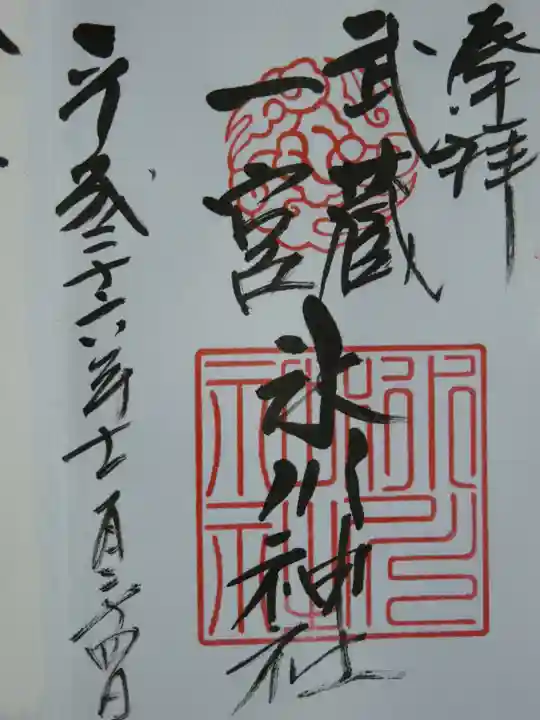 奉拝
武蔵
一宮
氷川神社
平成二十六年十一月二十四日
氷川
神社